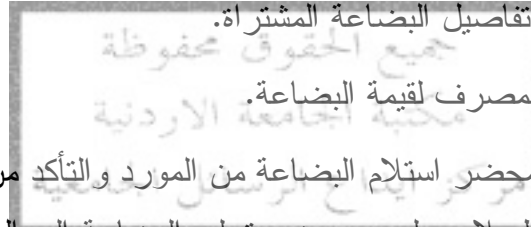 تفاصيل البضاعة المشتراة.
جميع الحقوق محفوظة
مصرف لقيمة البضاعة.
مكتبة الجامعة الاردنية
محضر استلام البضاعة من المورد والتأكد من
مركز ايداع الرسائل الجامعية